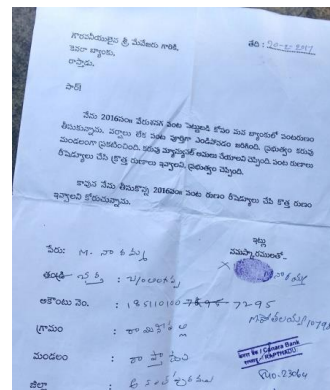 గౌరవనీయులైన శ్రీ మేనేజరు గారికి,
తేది : 20-2-2017
కెనరా బ్యాంకు,
రాప్తాడు.
సార్!
నేను 2016సం॥ వేరుశనగ పంట పెట్టుబడి కోసం మన బ్యాంకులో పంటరుణం
తీసుకున్నాను. వర్షాలు లేక పంట పూర్తిగా ఎండిపోవడం జరిగింది. ప్రభుత్వం కరువు
మండలంగా ప్రకటించింది. కరువు మ్యాన్యువల్ అమలు చేయాలని చెప్పింది. పంట రుణాలు
రీషెడ్యూలు చేసి క్రొత్త రుణాలు ఇవ్వాలని, ప్రభుత్వం చెప్పింది.
కావున నేను తీసుకొన్న 2016సం॥ పంట రుణం రీషెడ్యూలు చేసి క్రొత్త రుణం
ఇవ్వాలని కోరుచున్నాను.
ఇట్లు
నమస్కారములతో-
పేరు: M.
తండ్రి
అకౌంటు నెం. : 185110100 7295
గ్రామం
మండలం : రాప్తాడు
Canara Bank
RAPTHADU
జిల్లా